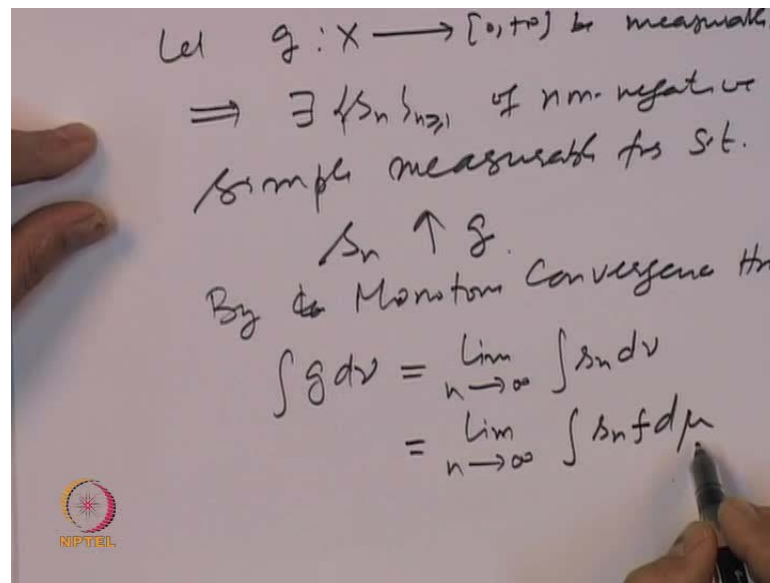 Let g : X ⟶ [0, +∞] be measurabl
⟹ ∃ {sₙ}ₙ≥₁ of non-negative
simple measurable fns s.t.
sₙ ↑ g.
By Monotone Convergence Th
∫ g dν = lim n→∞ ∫ sₙ dν
= lim n→∞ ∫ sₙ f dμ
NPTEL